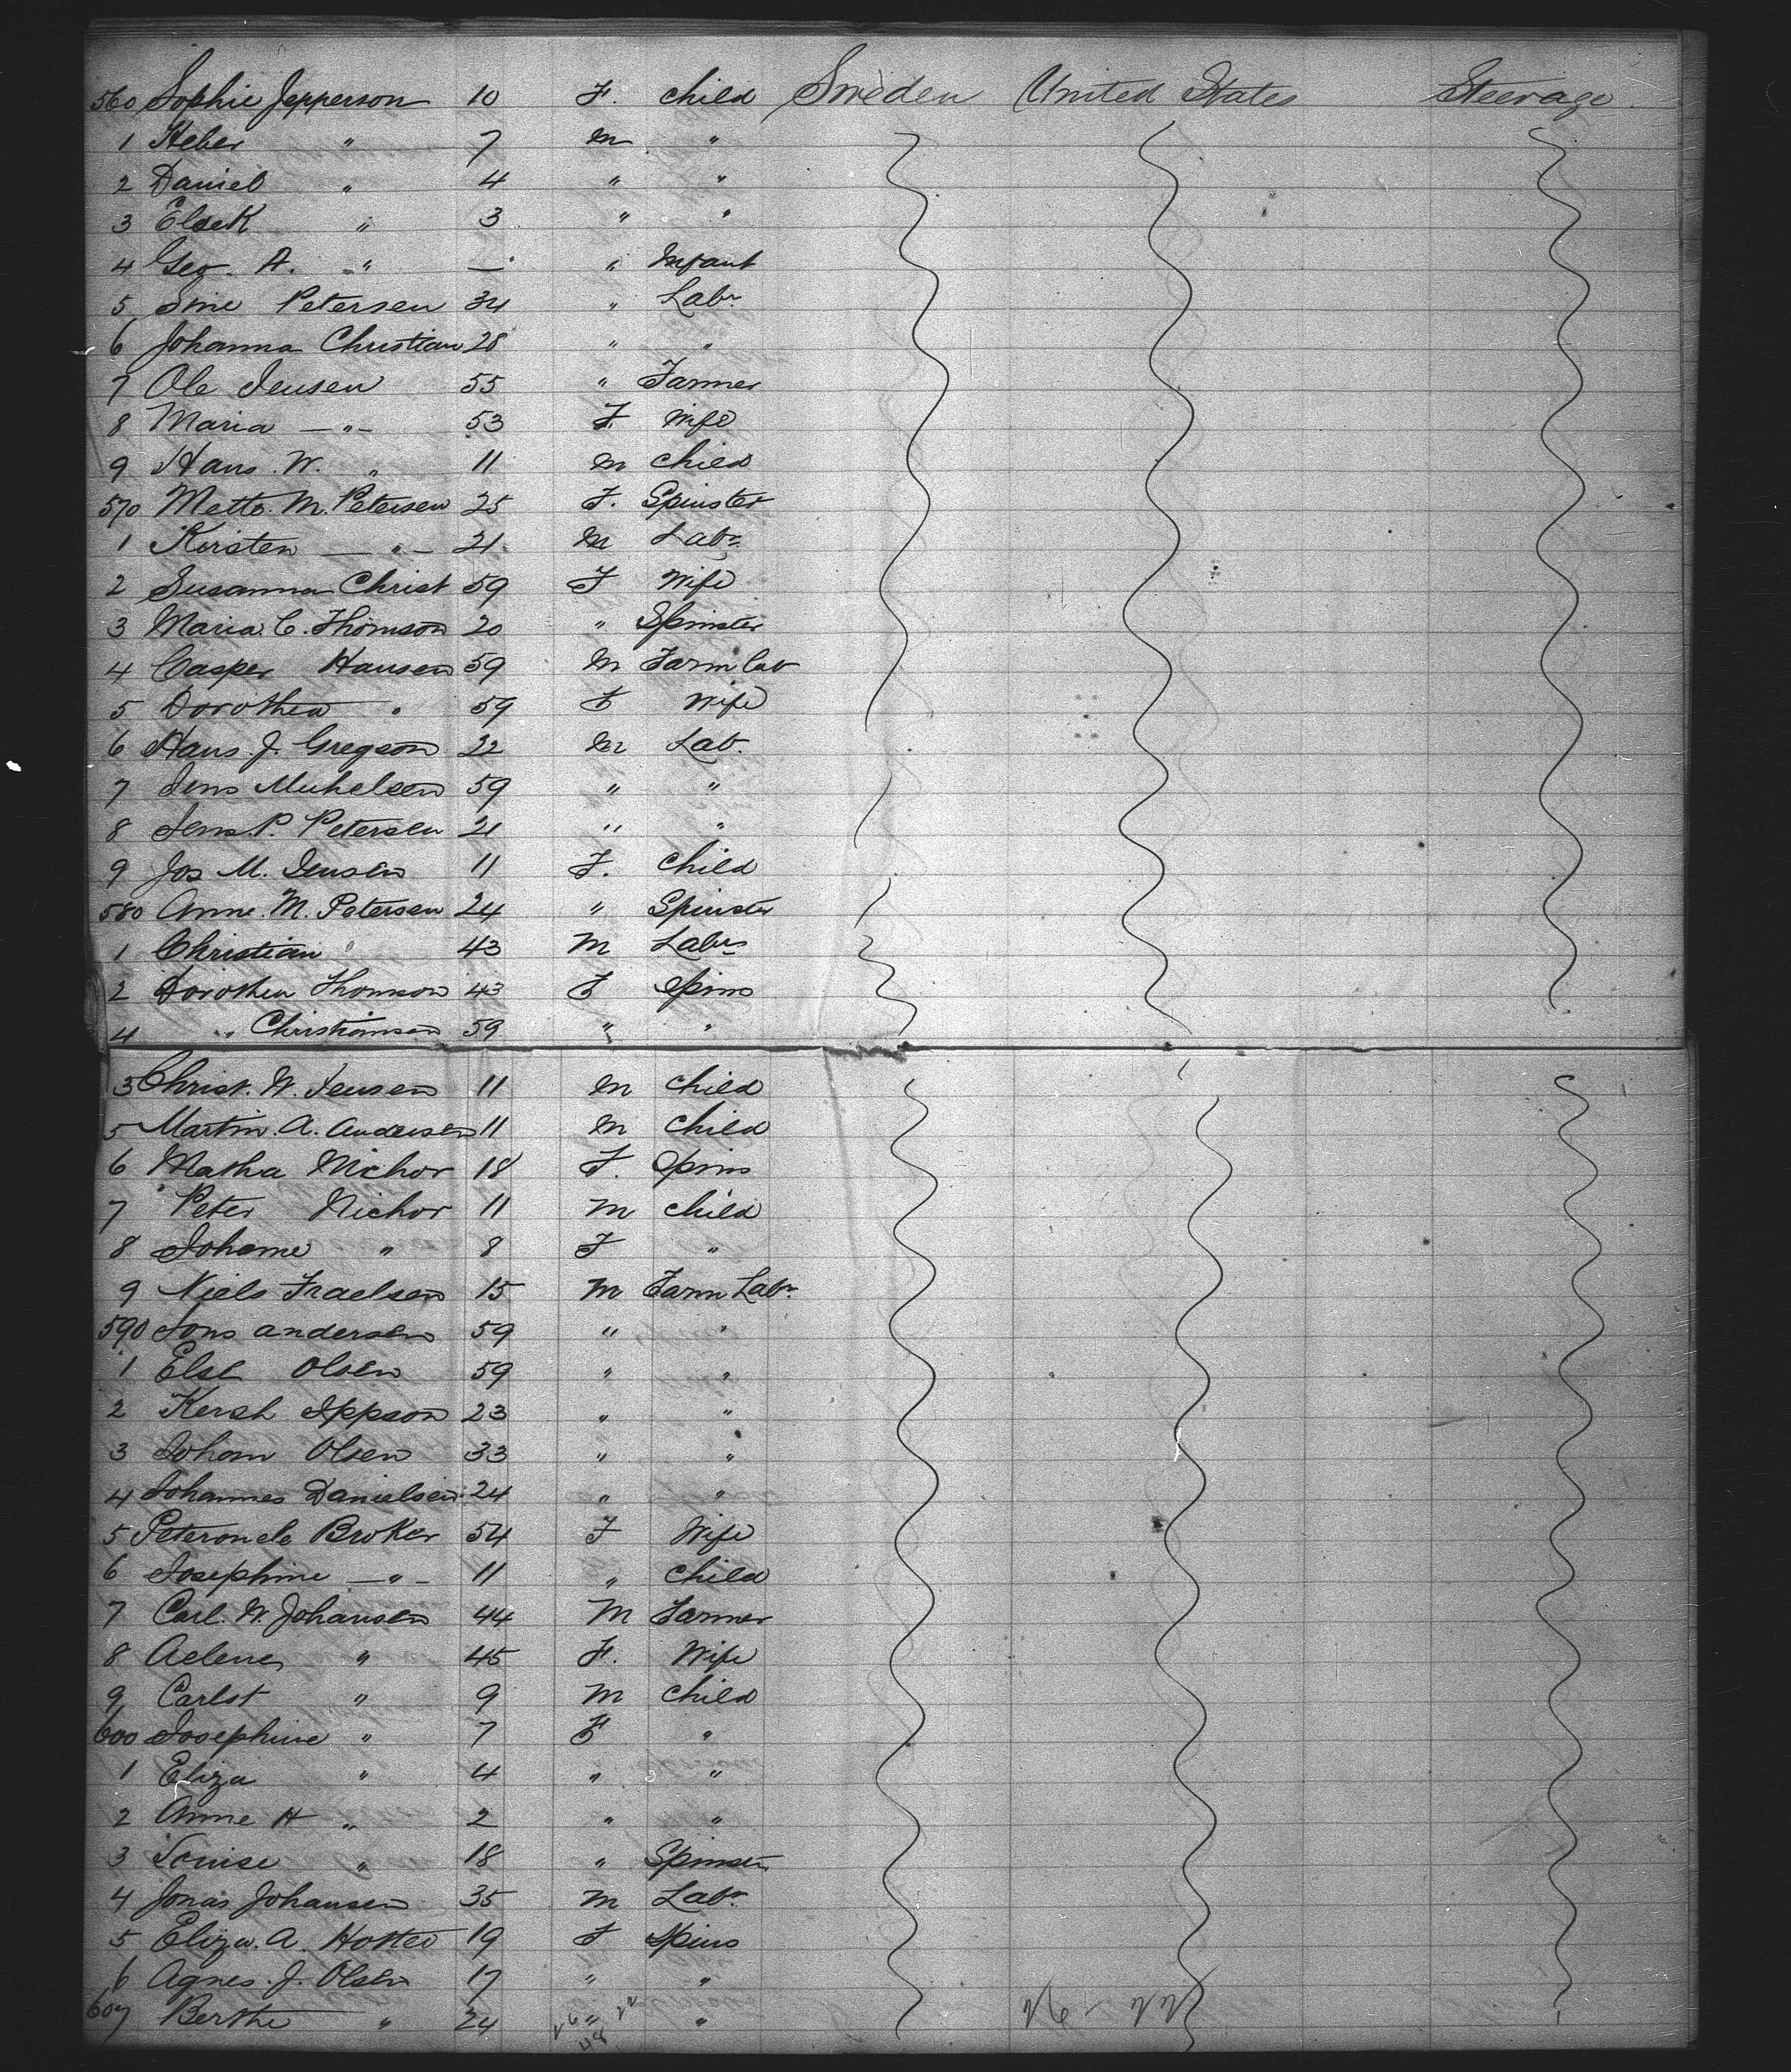 560 Sophie Jepperson 10 F. child Sweden United States Steerage
1 Heber " 7 m "
2 Daniel " 4 " "
3 Elsek " 3 " "
4 Geo. A. " — " Infant
5 Sine Petersen 34 " Labr
6 Johanna Christian 28 " "
7 Ole Jensen 55 " Farmer
8 Maria — " — 53 F. Wife
9 Hans. W. " 11 m child
570 Mette. M. Petersen 25 F. Spinster
1 Kirsten — " — 21 m Labr
2 Susanna Christ 59 F Wife
3 Maria. C. Thomson 20 " Spinster
4 Casper Hansen 59 m Farm Lab
5 Dorothea " 59 F Wife
6 Hans. J. Gregson 22 m Lab.
7 Jens Michelsen 59 " "
8 Jens. P. Petersen 21 " "
9 Jos M. Jensen 11 F. child
580 Anne. M. Petersen 24 " Spinster
1 Christian " 43 m Labr
2 Dorothea Thomson 43 F Spins
4 " Christiansen 59 " "
3 Christ. W. Jensen 11 m child
5 Martin. A. Andersen 11 m child
6 Matha Nichor 18 F. Spins
7 Peter Nichor 11 m child
8 Johanne " 8 F "
9 Niels Fraelsen 15 m Farm Labr
590 Jons Andersen 59 " "
1 Else Olsen 59 " "
2 Kersh Ippson 23 " "
3 Johan Olsen 33 " "
4 Johannes Danielsen 24 " "
5 Peteroncle Broker 54 F Wife
6 Josephine — " — 11 " child
7 Carl. W. Johansen 44 m Farmer
8 Aelene " 45 F. Wife
9 Carlst " 9 m child
600 Josephine " 7 F "
1 Eliza " 4 " "
2 Anne H " 2 " "
3 Louise " 18 " Spinster
4 Jonas Johansen 35 m Labr
5 Eliza. A. 19 F Spins
6 Agnes. J. Olsen 17 " "
607 Berthe " 24 " "